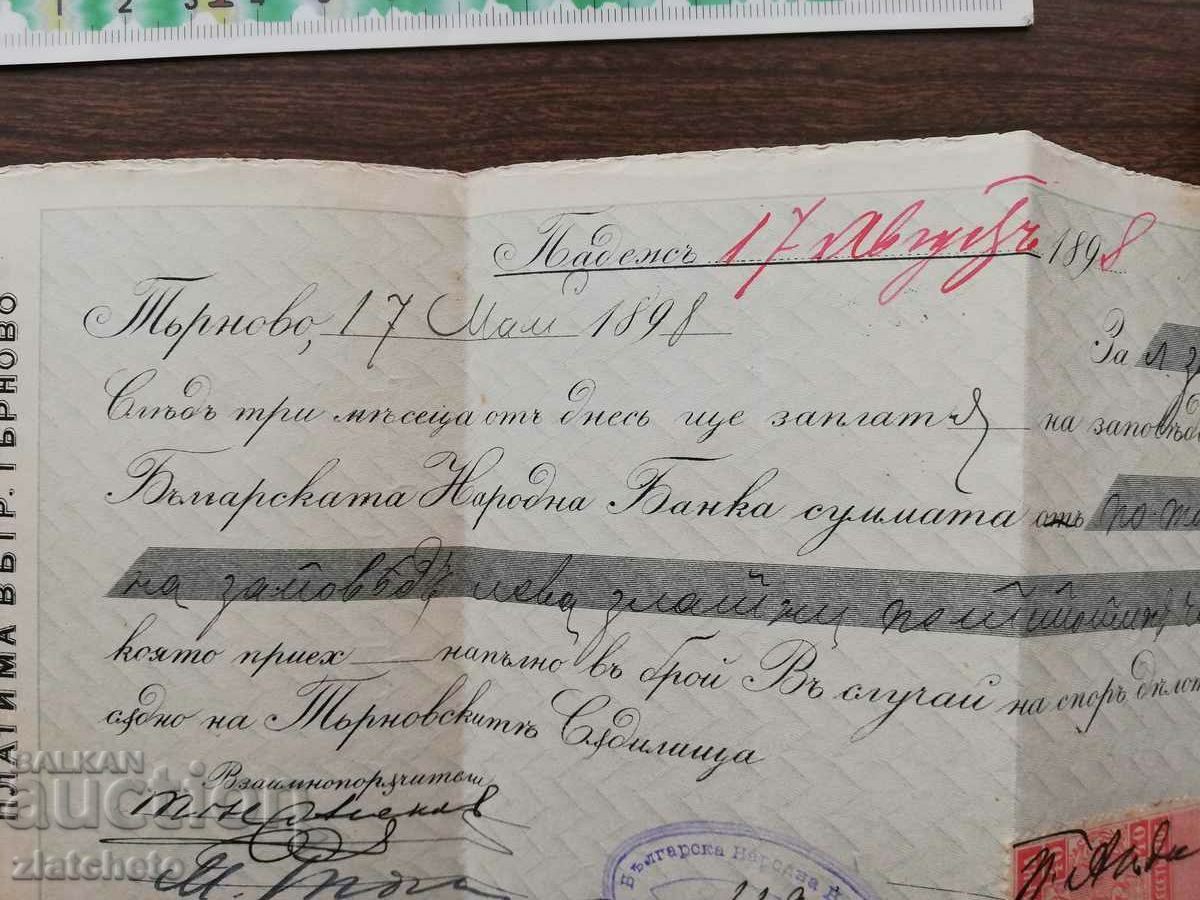 1 2 3 4 5
Падежъ 17 Августъ 1898
Търново, 17 Май 1898
За л.
Слѣдъ три мѣсеца отъ днесь ще заплатѭ на заповѣдь
Българската Народна Банка суммата отъ
на заповѣдь лева златни
която приех напълно въ брой Въ случай на споръ дѣлото
сѫдно на Търновскитѣ Сѫдилища
Взаимнопорѫчители
Българска Народна
ПЛАТИМА ВЪ ГР. ТЪРНОВО
BALKAN
auction
zlatcheto